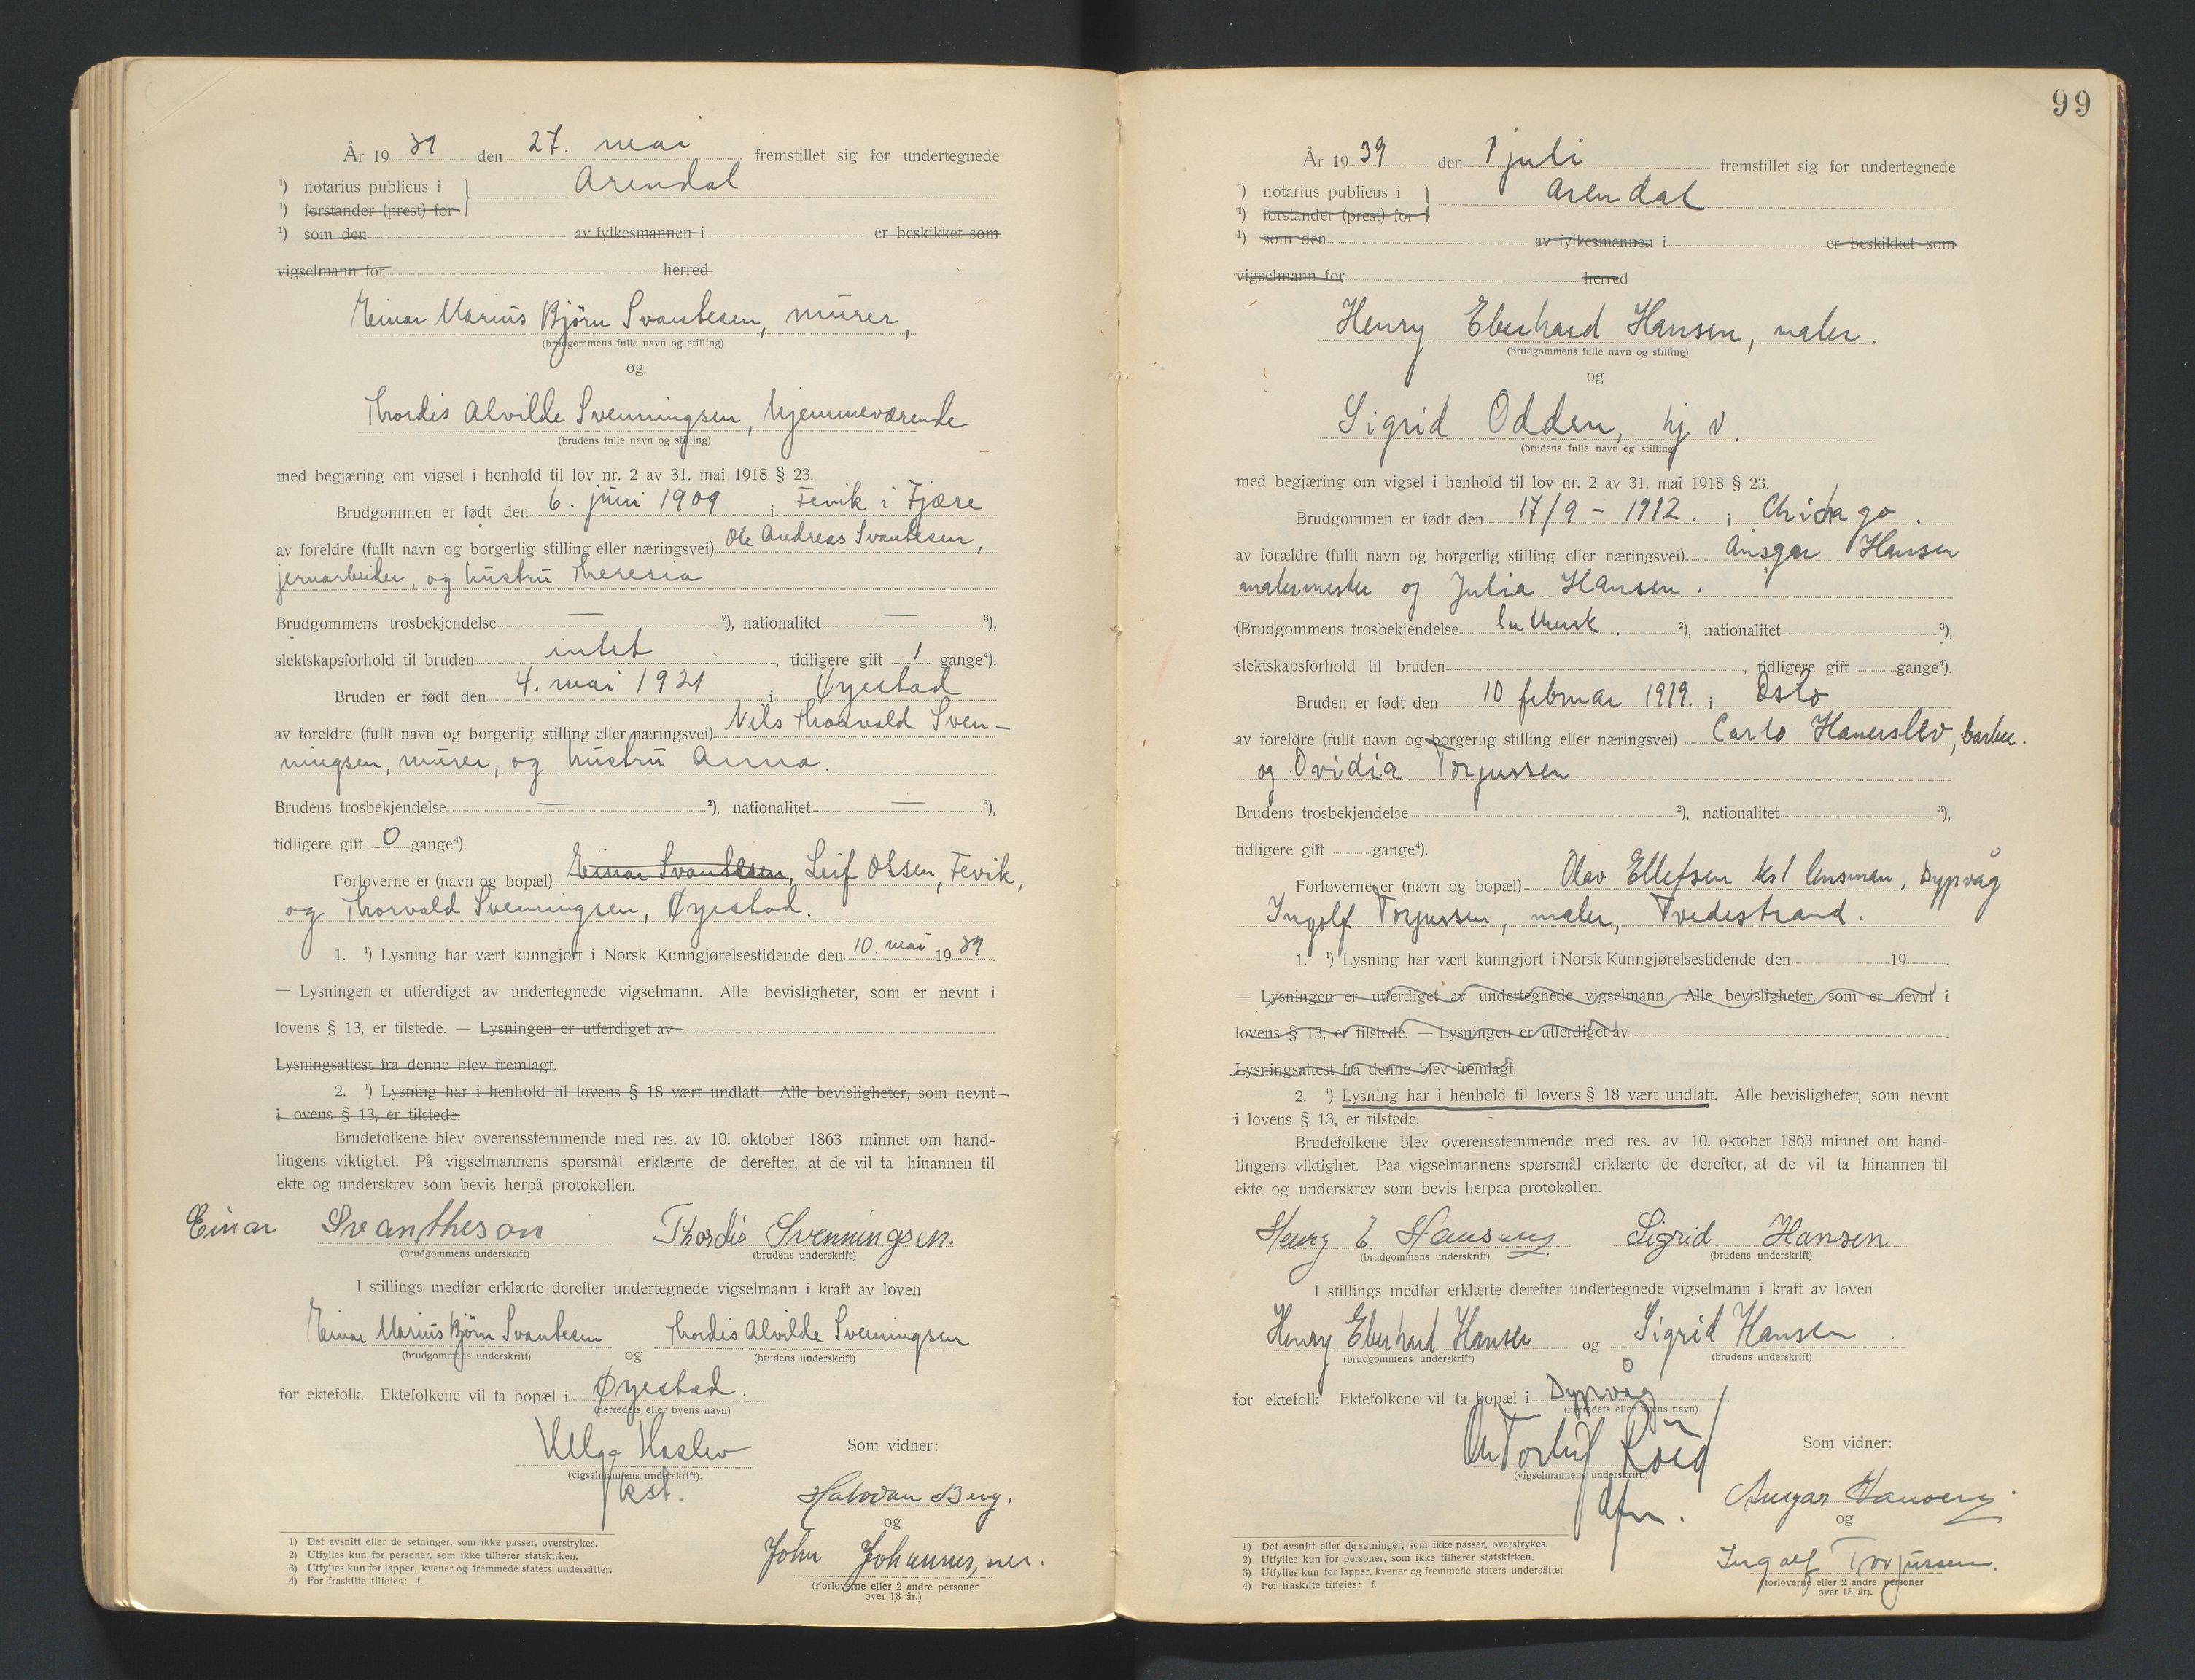 År 19 39 den 27. mai fremstillet sig for undertegnede
¹) notarius publicus i } Arendal
¹) forstander (prest) for
¹) som den av fylkesmannen i er beskikket som
vigselmann for herred
Einar Marius Bjørn Svantesen, murer,
(brudgommens fulle navn og stilling)
og
Thordis Alvilde Svenningsen, hjemmeværende
(brudens fulle navn og stilling)
med begjæring om vigsel i henhold til lov nr. 2 av 31. mai 1918 § 23.
Brudgommen er født den 6. juni 1909 i Fevik i Fjære
av foreldre (fullt navn og borgerlig stilling eller næringsvei) Ole Andreas Svantesen,
jernarbeider, og hustru Theresia
Brudgommens trosbekjendelse — ²), nationalitet — ³),
slektskapsforhold til bruden intet, tidligere gift 1 gange⁴).
Bruden er født den 4. mai 1921 i Øyestad
av foreldre (fullt navn og borgerlig stilling eller næringsvei) Nils Thorvald Sven-
ningsen, murer, og hustru Anna.
Brudens trosbekjendelse — ²), nationalitet — ³),
tidligere gift 0 gange⁴).
Forloverne er (navn og bopæl) Einar Svantesen, Leif Olsen, Fevik,
og Thorvald Svenningsen, Øyestad.
1. ¹) Lysning har vært kunngjort i Norsk Kunngjørelsestidende den 10. mai 19 39.
— Lysningen er utferdiget av undertegnede vigselmann. Alle bevisligheter, som er nevnt i
lovens § 13, er tilstede. — Lysningen er utferdiget av
Lysningsattest fra denne blev fremlagt.
2. ¹) Lysning har i henhold til lovens § 18 vært undlatt. Alle bevisligheter, som nevnt
i ovens § 13, er tilstede.
Brudefolkene blev overensstemmende med res. av 10. oktober 1863 minnet om hand-
lingens viktighet. På vigselmannens spørsmål erklærte de derefter, at de vil ta hinannen til
ekte og underskrev som bevis herpå protokollen.
Einar Svantheson Thordis Svenningsen.
(brudgommens underskrift) (brudens underskrift)
I stillings medfør erklærte derefter undertegnede vigselmann i kraft av loven
Einar Marius Bjørn Svantesen og Thordis Alvilde Svenningsen
(brudgommens underskrift) (brudens underskrift)
for ektefolk. Ektefolkene vil ta bopæl i Øyestad.
(herredets eller byens navn)
Helga Haslev
(vigselmannens underskrift).
kst.
Som vidner:
Halvdan Berg.
og
John Johannessen.
(Forloverne eller 2 andre personer
over 18 år.)
1) Det avsnitt eller de setninger, som ikke passer, overstrykes.
2) Utfylles kun for personer, som ikke tilhører statskirken.
3) Utfylles kun for lapper, kvener og fremmede staters undersåtter.
4) For fraskilte tilføies: f.
99
År 19 39 den 1 juli fremstillet sig for undertegnede
¹) notarius publicus i } Arendal
¹) forstander (prest) for
¹) som den av fylkesmannen i er beskikket som
vigselmann for herred
Henry Eberhard Hansen, maler.
(brudgommens fulle navn og stilling)
og
Sigrid Odden, hj v.
(brudens fulle navn og stilling
med begjæring om vigsel i henhold til lov nr. 2 av 31. mai 1918 § 23.
Brudgommen er født den 17/9 - 1912. i Chicago.
av forældre (fullt navn og borgerlig stilling eller næringsvei) Ansgar Hansen
malermester og Julia Hansen.
(Brudgommens trosbekjendelse luthersk. ²), nationalitet ³),
slektskapsforhold til bruden , tidligere gift gange⁴).
Bruden er født den 10 februar 1919. i Oslo
av foreldre (fullt navn og borgerlig stilling eller næringsvei) Carlo Hanerslev, barber.
og Ovidia Torjussen
Brudens trosbekjendelse ²), nationalitet ³),
tidligere gift gange⁴).
Forloverne er (navn og bopæl) Olav Ellefsen kst lensman, Dypvåg
Ingolf Torjussen, maler, Tvedestrand.
1. ¹) Lysning har vært kunngjort i Norsk Kunngjørelsestidende den 19 .
— Lysningen er utferdiget av undertegnede vigselmann. Alle bevisligheter, som er nevnt i
lovens § 13, er tilstede. — Lysningen er utferdiget av .
Lysningsattest fra denne blev fremlagt.
2. ¹) Lysning har i henhold til lovens § 18 vært undlatt. Alle bevisligheter, som nevnt
i lovens § 13, er tilstede.
Brudefolkene blev overensstemmende med res. av 10. oktober 1863 minnet om hand-
lingens viktighet. Paa vigselmannens spørsmål erklærte de derefter, at de vil ta hinannen til
ekte og underskrev som bevis herpaa protokollen.
Henry E. Hansen Sigrid Hansen
(brudgommens underskrift) (brudens underskrift)
I stillings medfør erklærte derefter undertegnede vigselmann i kraft av loven
Henry Eberhard Hansen og Sigrid Hansen.
(brudgommens underskrift) (brudens underskrift)
for ektefolk. Ektefolkene vil ta bopæl i Dypvåg.
(herredets eller byens navn)
(vigselmannens underskrift.)
Som vidner:
Ansgar Hansen
og
Ingolf Torjussen.
(forloverne eller 2 andre personer
over 18 år).
1) Det avsnitt eller de setninger, som ikke passer, overstrykes.
2) Utfylles kun for personer, som ikke tilhører statskirken.
3) Utfylles kun for lapper, kvener og fremmede staters undersåtter
4) For fraskilte tilføies: f.